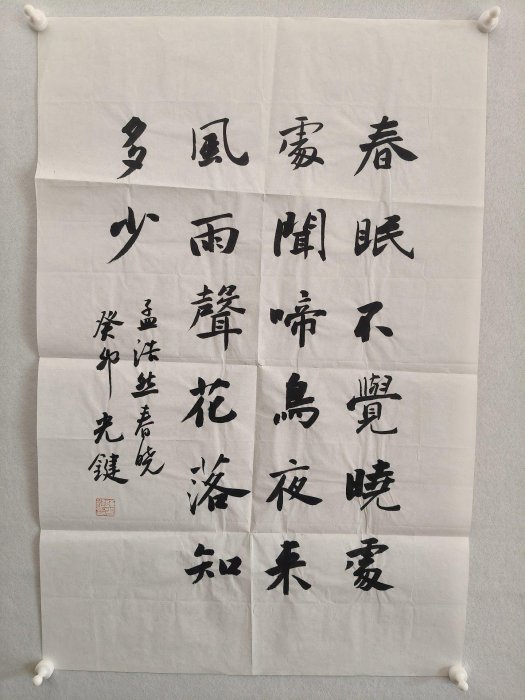 春眠不覺曉處
處聞啼鳥夜来
風雨聲花落知
多少
孟浩然春晓
癸卯光鍵